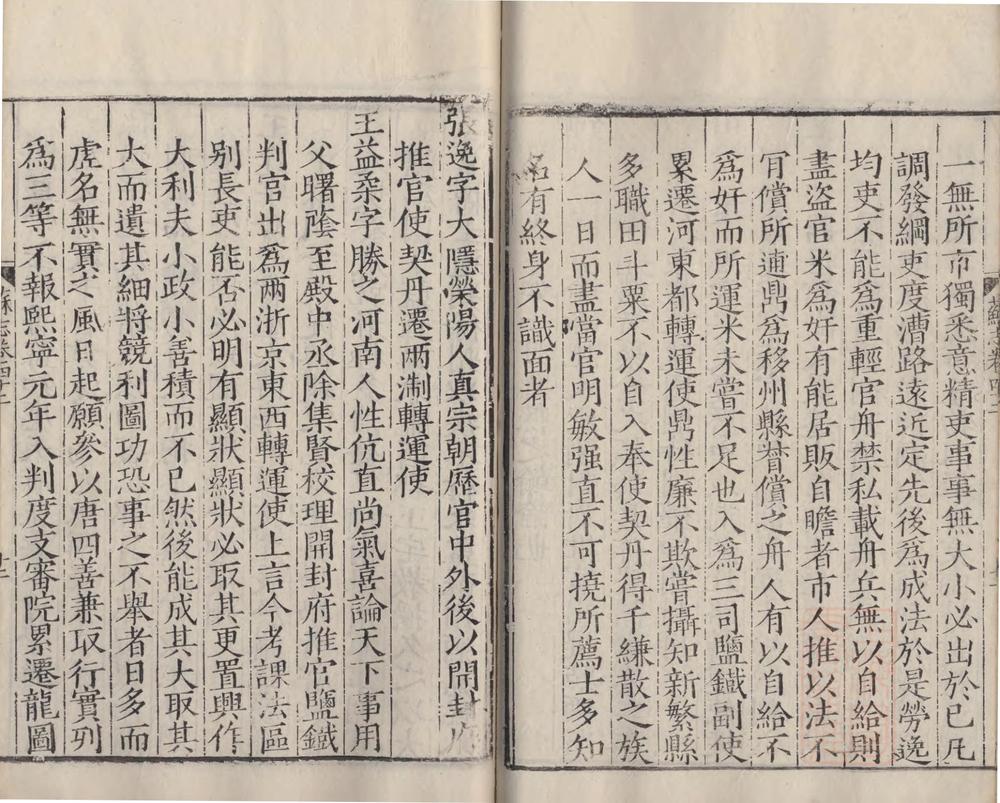 一無所市獨悉意精吏事事無大小必出於已凡
調發綱吏度漕路遠近定先後爲成法於是勞逸
均吏不能爲重輕官舟禁私載舟兵無以自給則
盡盜官米爲奸有能居販自贍者市人推以法不
肎償所逋鼎爲移州縣督償之舟人有以自給不
爲奸而所運米未嘗不足也入爲三司鹽鐵副使
累遷河東都轉運使鼎性廉不欺嘗攝知新繁縣
多職田斗粟不以自入奉使契丹得千縑散之族
人一日而盡當官明敏强直不可撓所薦士多知
名有終身不識面者
張逸字大隱滎陽人真宗朝歷官中外後以開封
推官使契丹遷兩淛轉運使
王益柔字勝之河南人性伉直尚氣喜論天下事用
父曙蔭至殿中丞除集賢校理開封府推官鹽鐵
判官出爲兩浙京東西轉運使上言今考課法區
别長吏能否必明有顯狀顯狀必取其更置興作
大利夫小政小善積而不已然後能成其大取其
大而遺其細將競利圖功恐事之不舉者日多而
虎名無實之風日起願參以唐四善兼取行實列
爲三等不報熙寧元年入判度支審院累遷龍圖